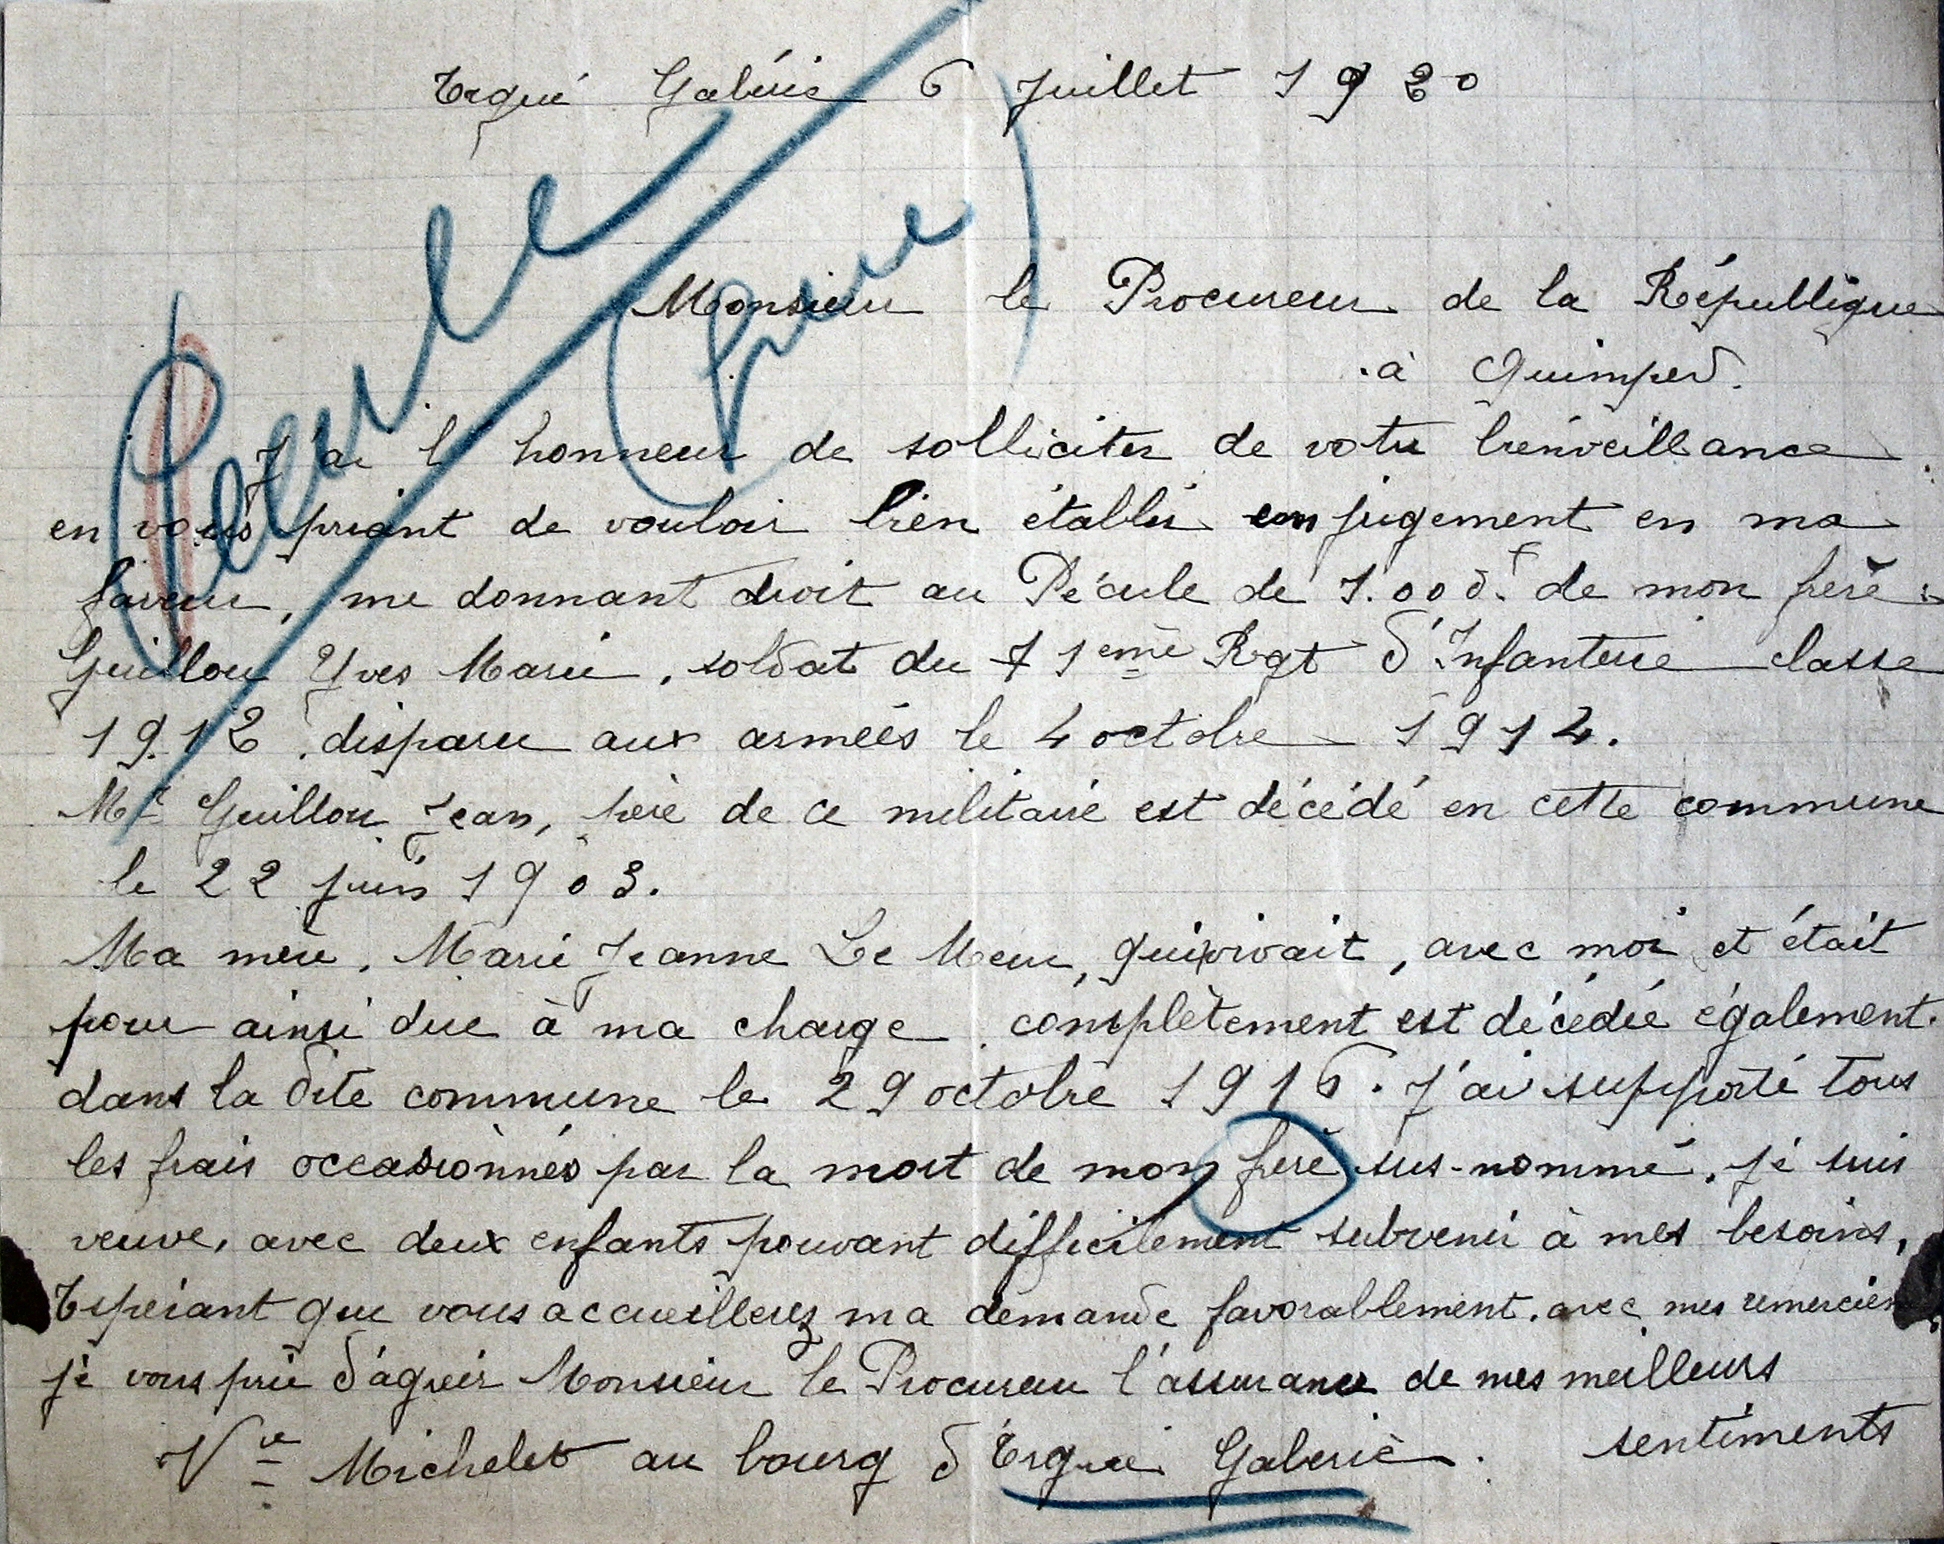 Ergué Gabéric 6 Juillet 1920
Pécule
(frère)
Monsieur le Procureur de la République
à Quimper.
J'ai l'honneur de solliciter de votre bienveillance
en vous priant de vouloir bien établir un jugement en ma
faveur, me donnant droit au Pécule de 1.000f. de mon frère
Guillou Yves Marie, soldat du 71eme Rgt d'Infanterie classe
1912, disparu aux armées le 4 octobre 1914.
Mr Guillou Jean, père de ce militaire est décédé en cette commune
le 22 juin 1903.
Ma mère, Marie Jeanne Le Meur, qui vivait, avec moi et était
pour ainsi dire à ma charge complètement est décédée également
dans la dite commune le 29 octobre 1916. J'ai supporté tous
les frais occasionnés par la mort de mon frère sus-nommé, je suis
veuve, avec deux enfants pouvant difficilement subvenir à mes besoins,
Espérant que vous accueillerez ma demande favorablement, avec mes remerciem
je vous prie d'agréer Monsieur le Procureur l'assurance de mes meilleurs
sentiments
Vve Michelet au bourg d'Ergué Gabéric.